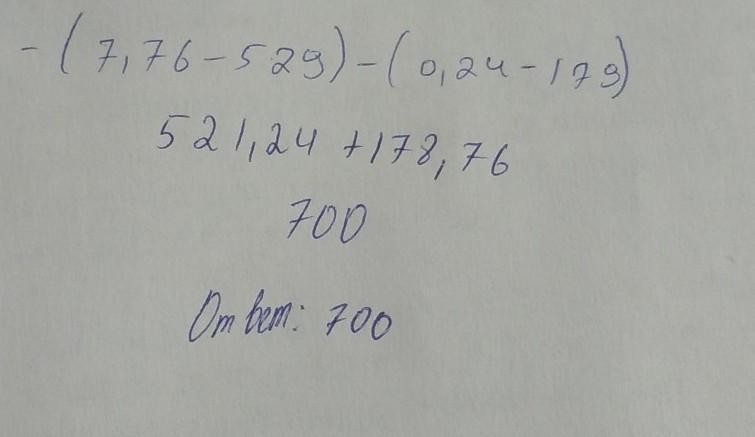 -(7,76-529)-(0,24-179)
521,24+178,76
700
Ответ: 700